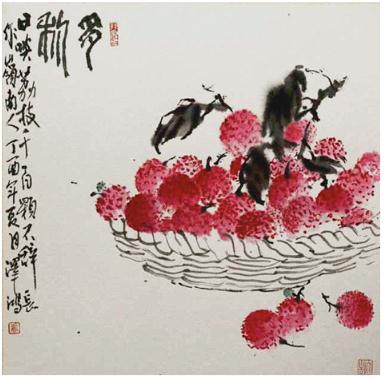 多利
日啖荔枝三百顆不辭長
作嶺南人丁酉年夏日澤鴻